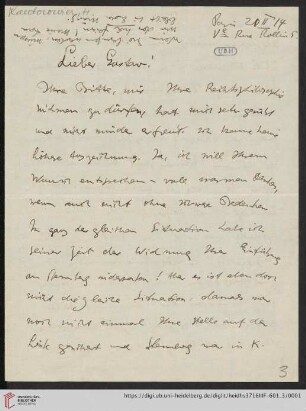 Kantorowicz H.
Paris 20 II 14
V Rue Rollin 5.
UBH
Lieber Gustav!
Ihre Bitte, mir Ihre Rechtsphilosophie
widmen zu dürfen, hat mich sehr geehrt
und nicht minder erfreut. Ich kenne keine
höhere Auszeichnung. Ja, ich will Ihrem
Wunsch entsprechen – voll warmen Dankes,
wenn auch nicht ohne schwere Bedenken
In ganz der gleichen Situation habe ich
seiner Zeit der Widmung Ihrer Einführung
an Sternberg widerraten! Aber es ist eben doch
nicht die gleiche Situation. damals war
noch nicht einmal Ihre Stelle auf der
gesichert und Sternberg war in K.
3
UNIVERSITÄTS-
BIBLIOTHEK
HEIDELBERG
https://digi.ub.uni-heidelberg.de/diglit/heidhs3716IIIF-601_3/0001